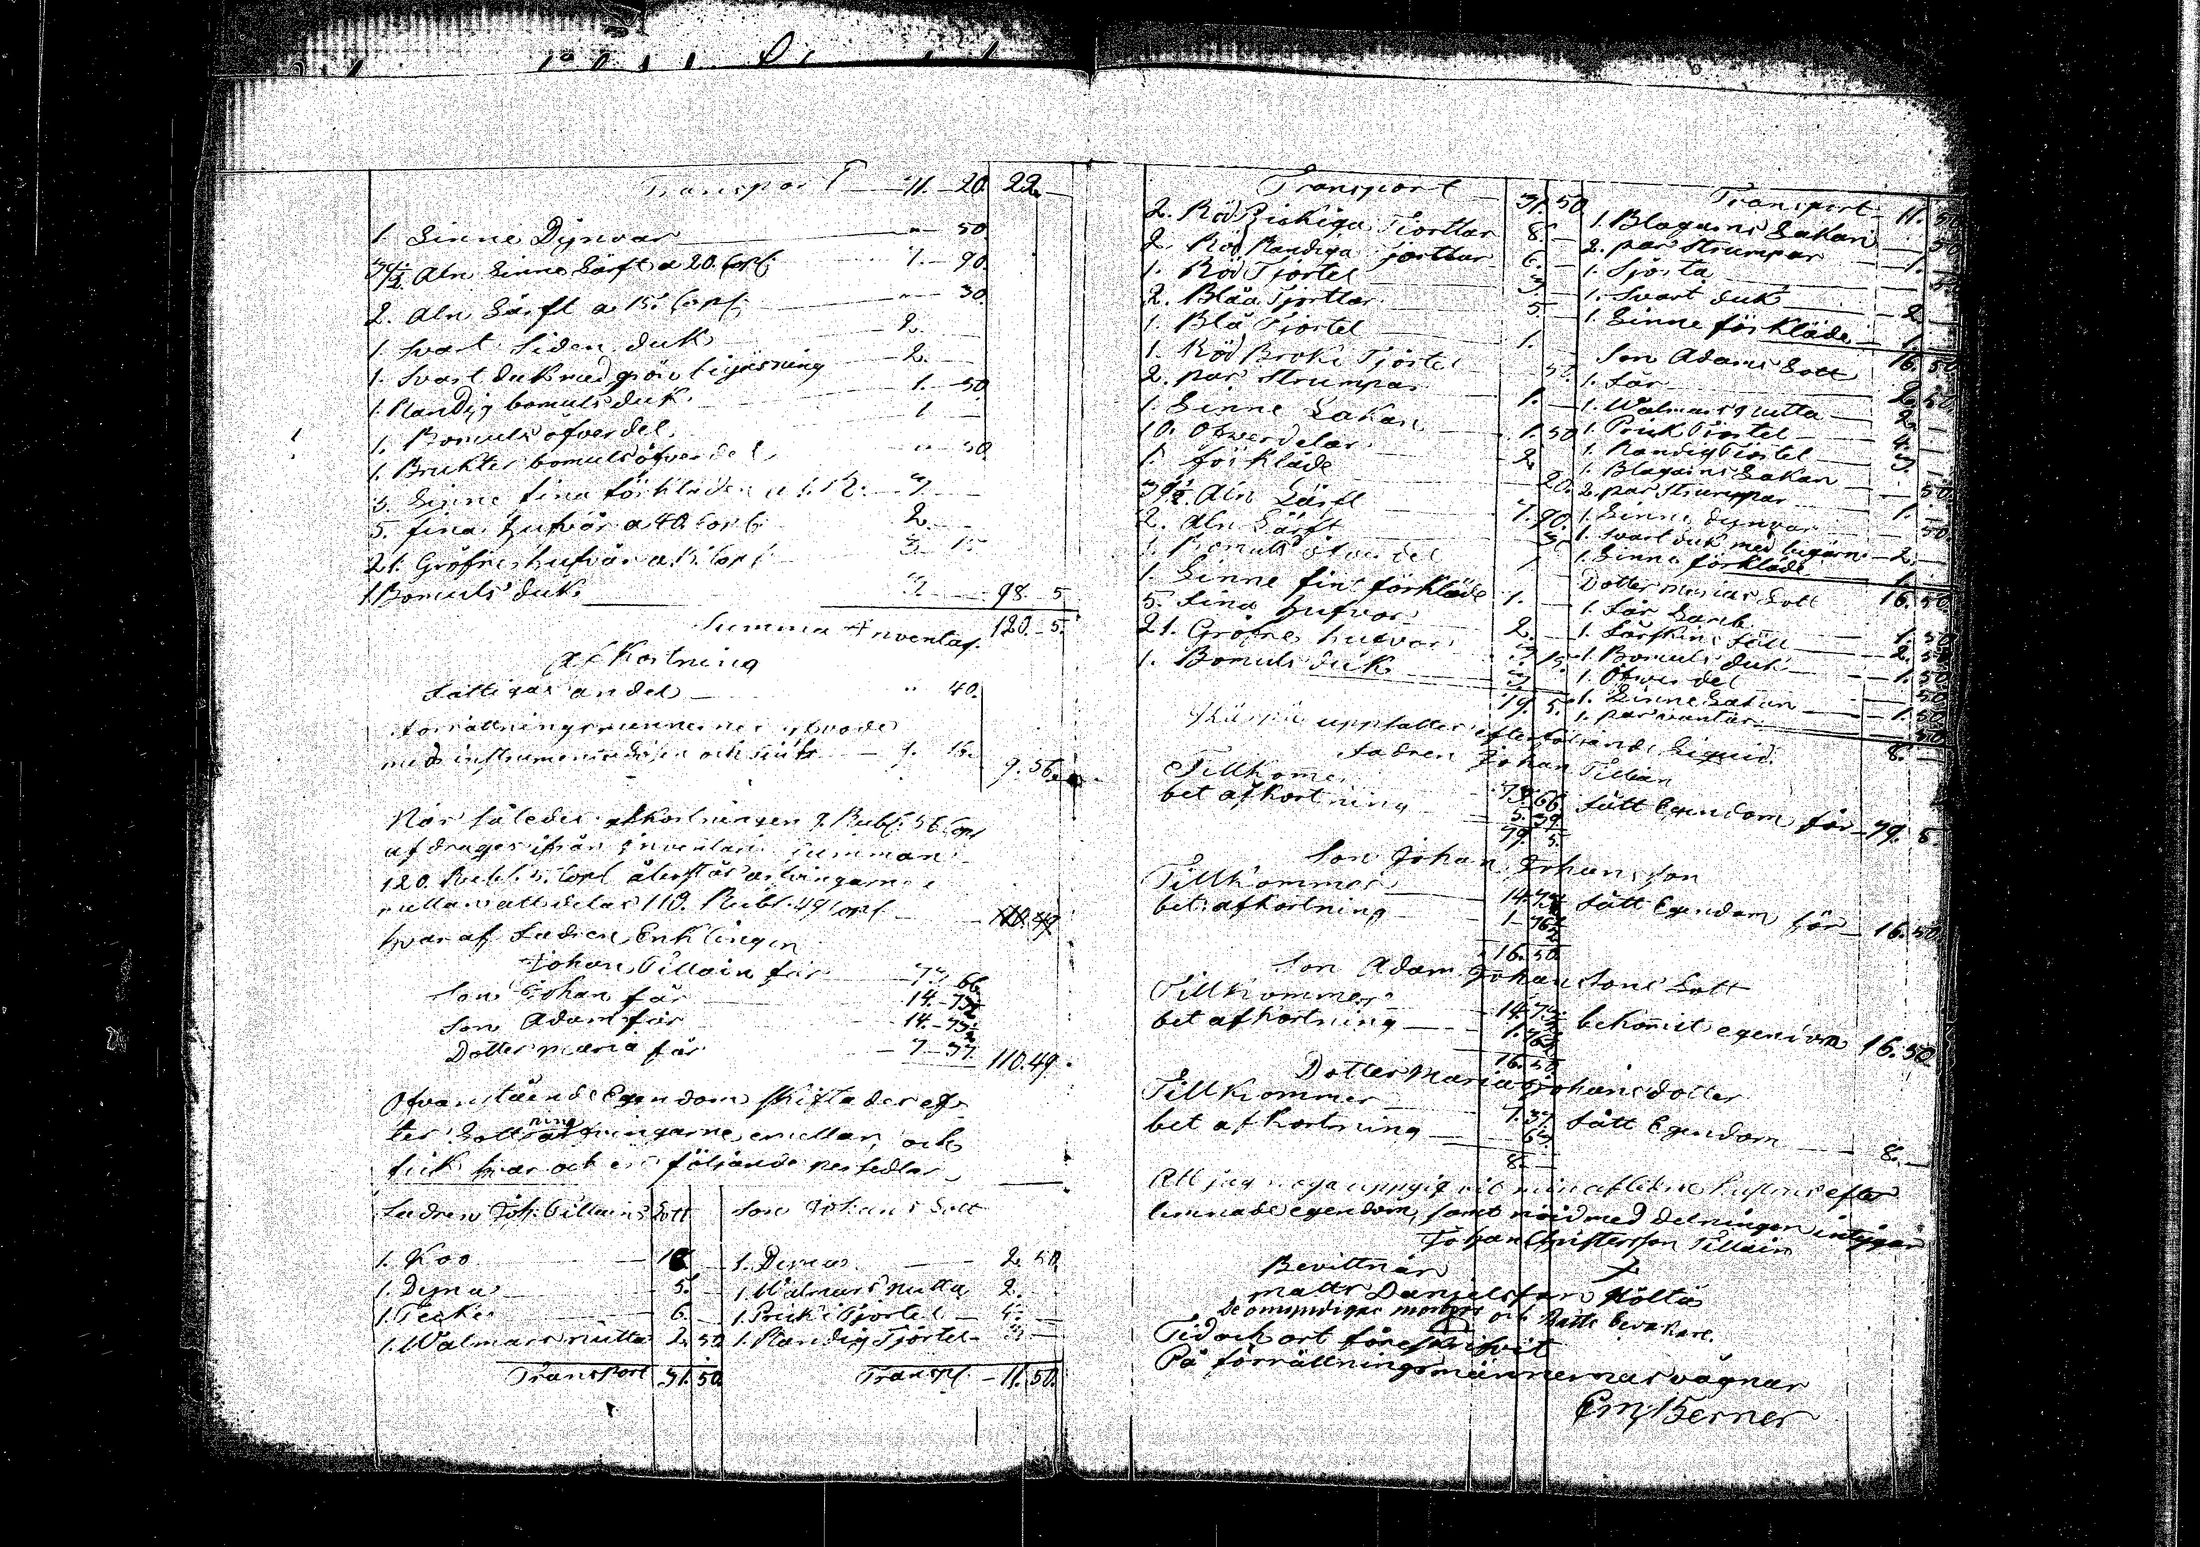 Transport 71. 20. 22.
1. Linne Dynvar " 50.
39½ Aln Linne Lärft a 20. Cop: 7. 90.
2. Aln Lärft a 15. Cop: " 30.
1. Svart Siden duk 2.
1. Svart duk med 2.
1. Randig bomuls duk 1. 50.
1. Bomuls öfverdel 1
1. Brukter bomuls öfverdel " 50.
3. Linne fina förkläden a 1. R: 3.
5. fina hufvor a 40 Cop: 2.
21. Gröfre hufvor a 15. Cop: 3 15
1. Bomuls duk 3 98. 5
Summa Inventar. 120. 5.
Afkortning
Fattigas andel " 40.
förrättningsmännernes arvode
med instrumentslösen och 9. 16. 9. 56.
När således afkortningen 9. Rubl. 56 Cop
afdrages ifrån Inventarii Summan
120. Rubl. 5. Cop återstår arfvingarne
mellan att delas 110. Rubl. 49 Cop: 110. 49
hvar af Fadren Enklingen
Johan Tillain får 73 66
Son Johan får 14. 73½
Son Adam får 14. 73½
Dotter Maria får 7 37 110. 49
Ofvanstående Egendom skiftades ef-
ter Lottning arfvingarne emellan, och
fick hvar och en följande persedlar
Fadren Joh. Tillains Lott Son Johans Lott
1. Koo 18 1. Dyna 2. 50.
1. Dyna 5. 1. Walmars mutta 2.
1. Täcke 6. 1. Prick Tjortel 4.
1. Walmars mutta 2. 50 1. Randig Tjortel 3
Transport 31. 50. Transp. 11. 50.
Transport 31. 50
2. Röd Tjortlar 8.
2. Röd Randiga Tjortlar 6.
1. Röd Tjortel 3
2. Blåa Tjortlar 5
1. Blå Tjortel 1.
1. Röd Broki Tjortel 50.
2. par Strumpor 1.
1. Linne Lakan 1. 50
10. Öfverdelar 2
1. förkläde 20.
39½ Aln Lärft 7. 90.
2. Aln Lärft 3
1. Bomuls öfverdel 1
1. Linne fint förkläde 1.
5. fina hufvor 2.
21. Gröfre hufvor 3. 15.
1. Bomuls duk 3
79. 5.
Transport 11. 50
1. Blagarns Lakan 50
2. par Strumpor 1.
1. Sjorta 50
1. Svart duk 2
1. Linne förkläde 1
16. 50
Son Adams Lott
1. Får 2. 50
1. Walmars mutta 2.
1. Prick Tjortel 4.
1. Randig Tjortel 3.
1. Blagarns Lakan 50.
2. par Strumpor 1.
1. Linne dynvar 50.
1. Svart duk med 2.
1. Linne förkläde 1
16. 50
Dotter Marias Lott
1. Får 1. 50
1. Fårskins fäll 2. 50
1. Bomuls duk 1. 50
1. Öfverdel 50
1. Linne Lakan 1. 50
1. par vantar 50
8.
upsattes efterföljande Liqvid.
Fadren Johan Tillain
Tillkommer 73. 66 fått Egendom för 79. 5.
bet afkortning 5. 39.
79. 5.
Son Johan Johansson
Tillkommer 14. 73½ fått Egendom för 16. 50.
bet: afkortning 1. 76½
16. 50.
Son Adam Johanssons Lott
Tillkommer 14. 73½ bekommit egendom 16. 50
bet afkortning 1. 76½
16. 50
Dotter Maria Johansdotter
Tillkommer 7. 37. fått Egendom 8.
bet afkortning 63.
8.
Att jag noga uppgivit min aflidne hustrus efter
lemnade egendom, samt nöjd med delningen intygar
Johan Christersson Tillain
Bevittnar
Matts Danielsson Költis
De omyndigas och Rätts bevakare.
Tid och ort föreskrifvit
På förrättningsmännernas vägnar
Em: Berner